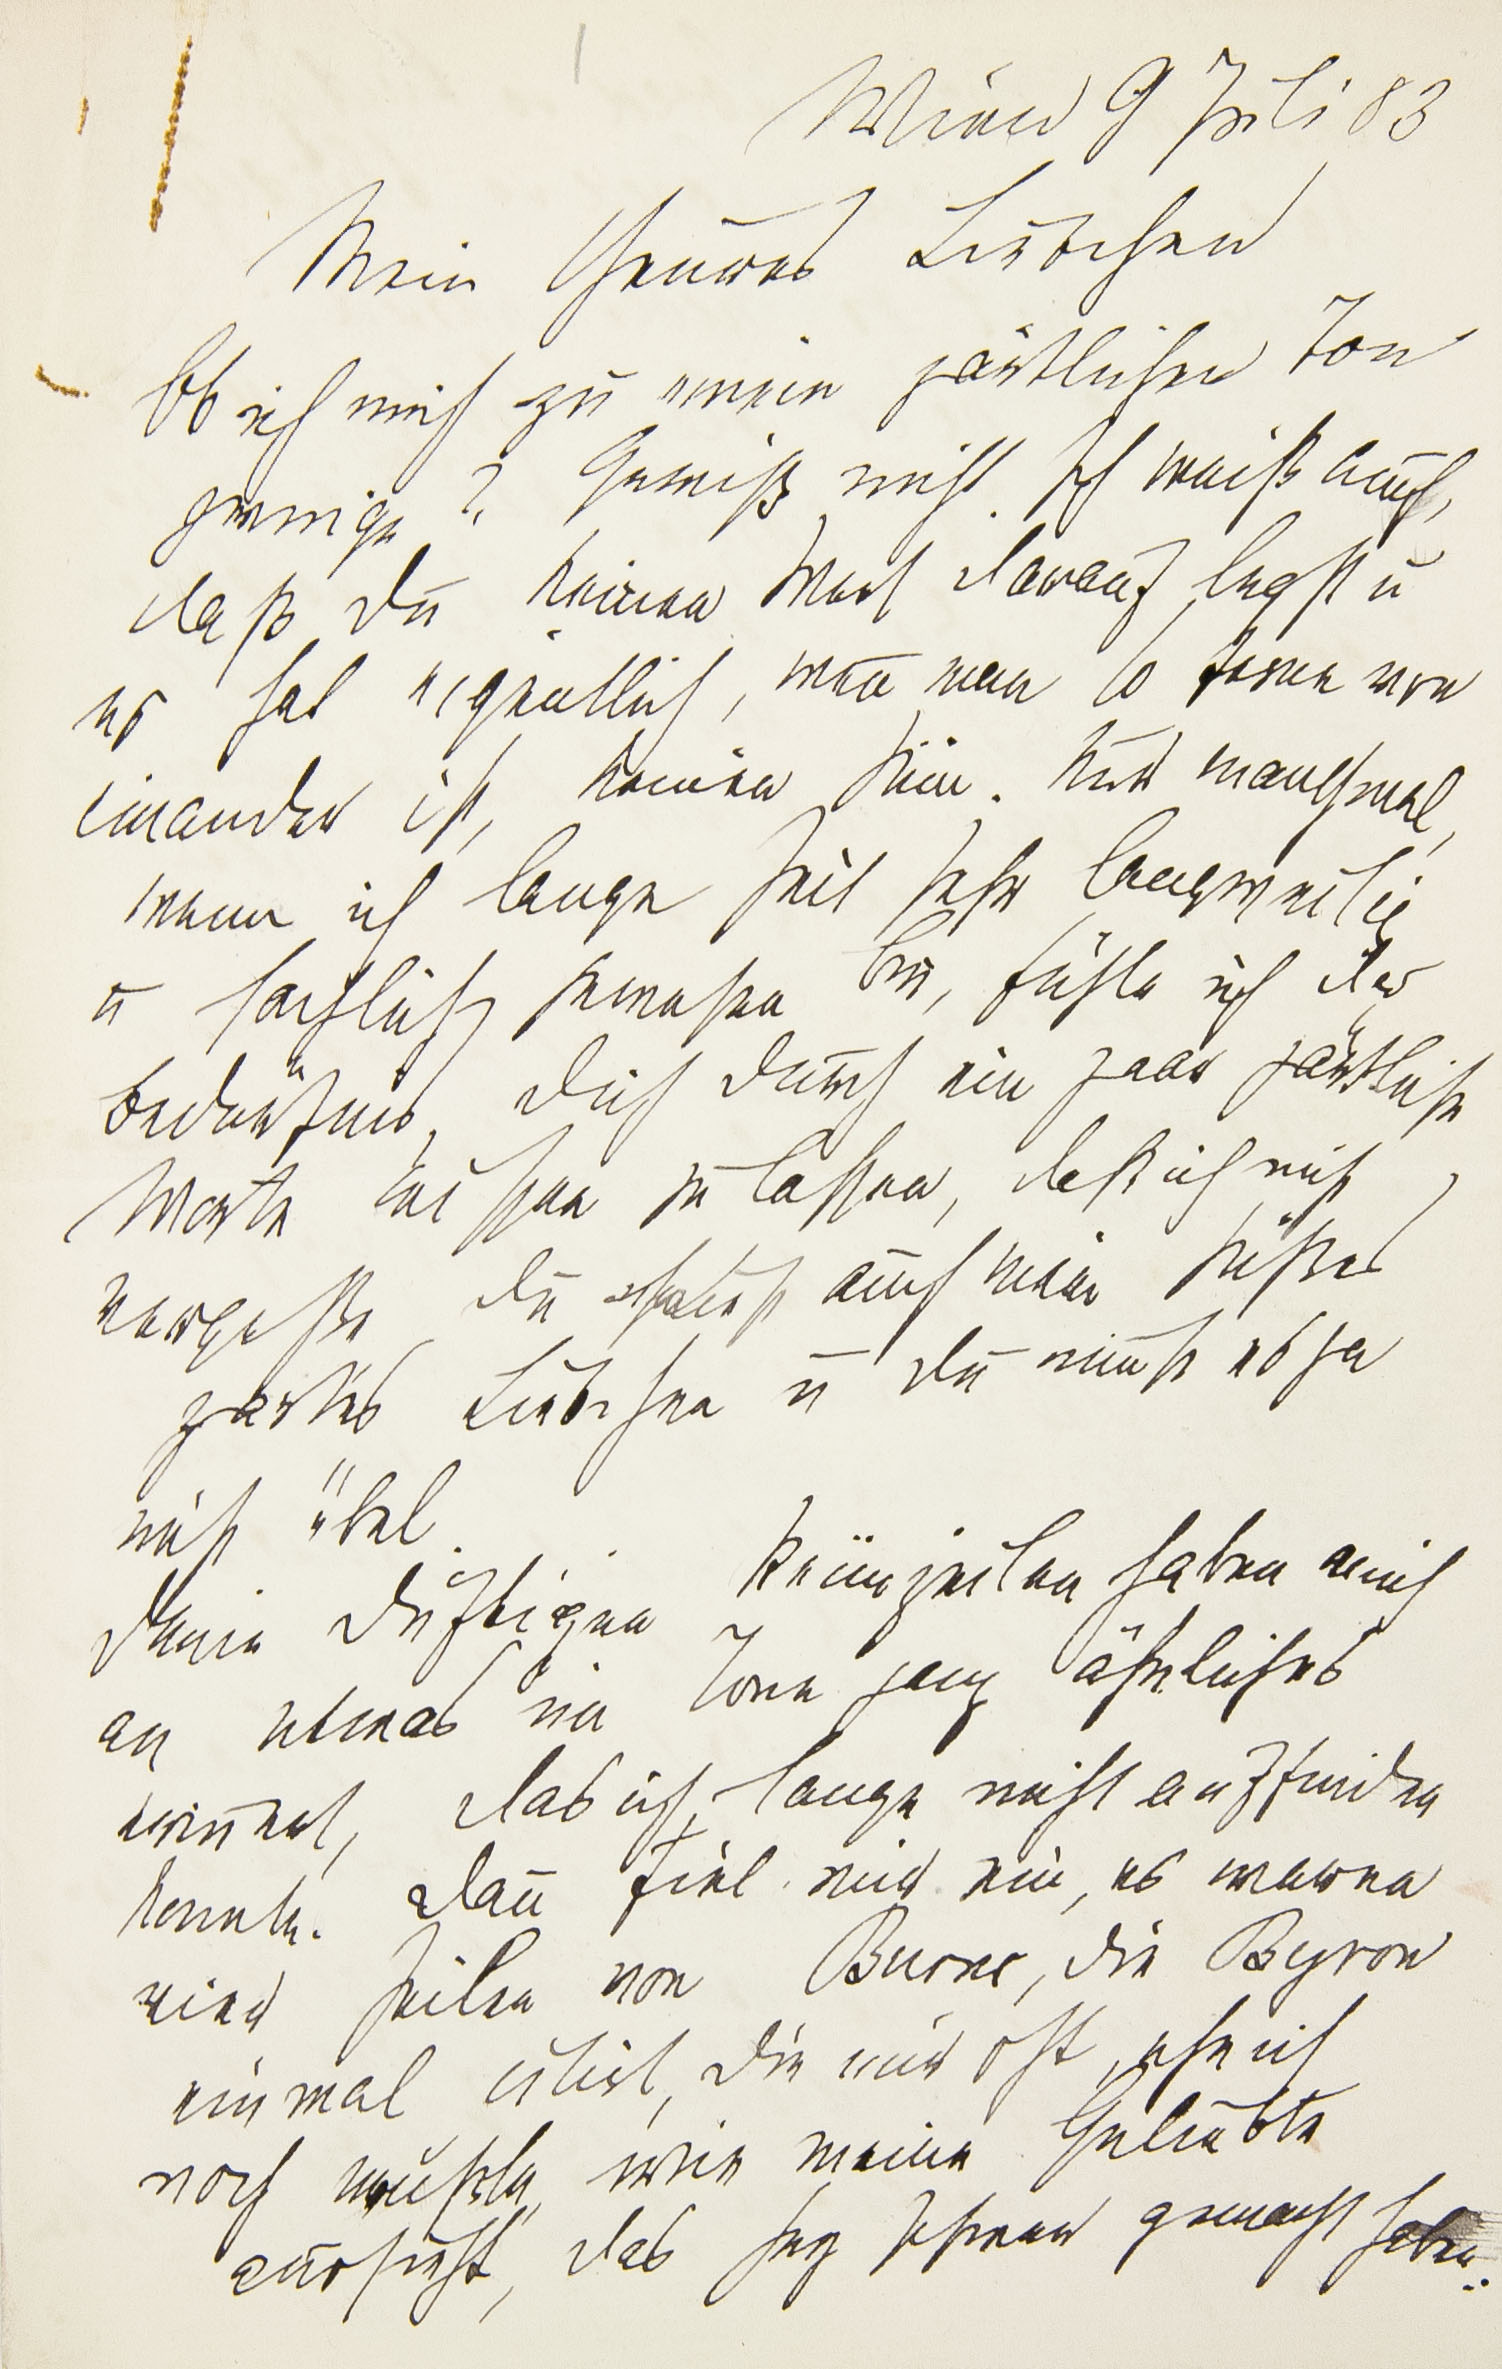 Wien 9 Juli 83
Mein theures Liebchen
Ob ich mich zu einem zärtlichen Ton
zwinge? Gewiß nicht. Ich weiß auch,
daß Du keinen Wert darauf legst u
es hat eigentlich, wen̄ man so ferne von
einander ist, keinen Sinn. Nur manchmal,
wenn ich lange Zeit sehr langweilig
u sachlich gewesen bin, fühle ich das
Bedürfnis, Dich durch ein paar zärtliche
Worte wissen zu lassen, daß ich nicht
vergesse, Du auch mein süßes
zartes Liebchen u Du nim̄st es ja
nicht übel.
Deine duftigen Reimzeilen haben mich
an etwas im Tone ganz ähnliches
erinnert, das ich lange nicht auffinden
konnte. Dan̄ fiel mir ein, es waren
vier Zeilen von Burns, die Byron
einmal citirt, die mir oft, ehe ich
noch wußte, wie meine Geliebte
aussieht, das Herz schwer gemacht haben: